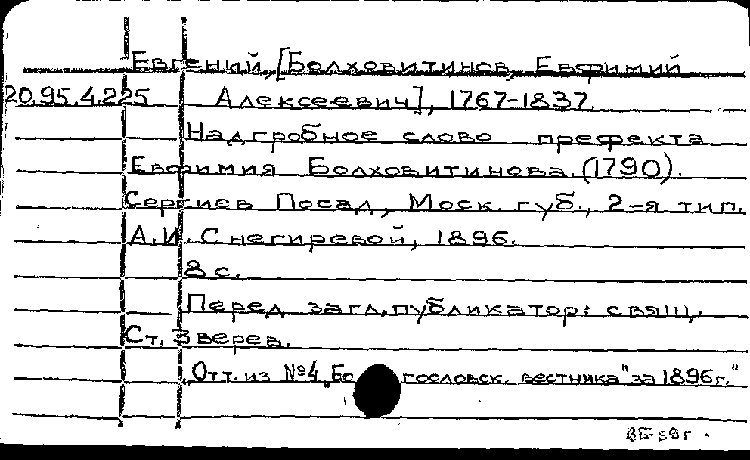 Евгений, [Болховитинов, Евфимий
20.95.4.225 Алексеевич], 1767-1837.
Надгробное слово префекта
Евфимия Болховитинова. (1790).
Сергиев Посад, Моск. губ., 2-я тип.
А.И. Снегиревой, 1896.
8 с.
Перед загл. публикатор: свящ.
Ст. Зверев.
Отт. из №4 „Богословск. вестника" за 1896г."